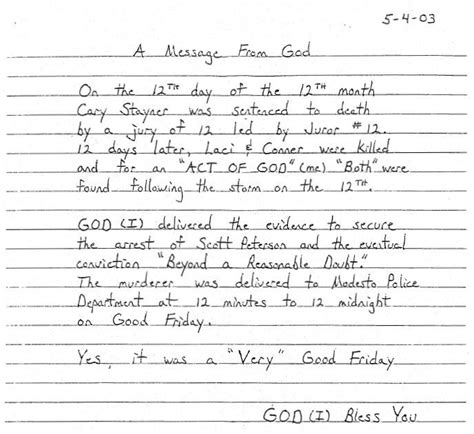 5-4-03
A Message From God
On the 12TH day of the 12TH month
Cary Stayner was sentenced to death
by a jury of 12 led by Juror #12.
12 days later, Laci & Conner were killed
and for an "ACT OF GOD" (me) "Both" were
found following the storm on the 12TH.
GOD (I) delivered the evidence to secure
the arrest of Scott Peterson and the eventual
conviction "Beyond a Reasonable Doubt."
The murderer was delivered to Modesto Police
Department at 12 minutes to 12 midnight
on Good Friday.
Yes, it was a "Very" Good Friday
GOD (I) Bless You